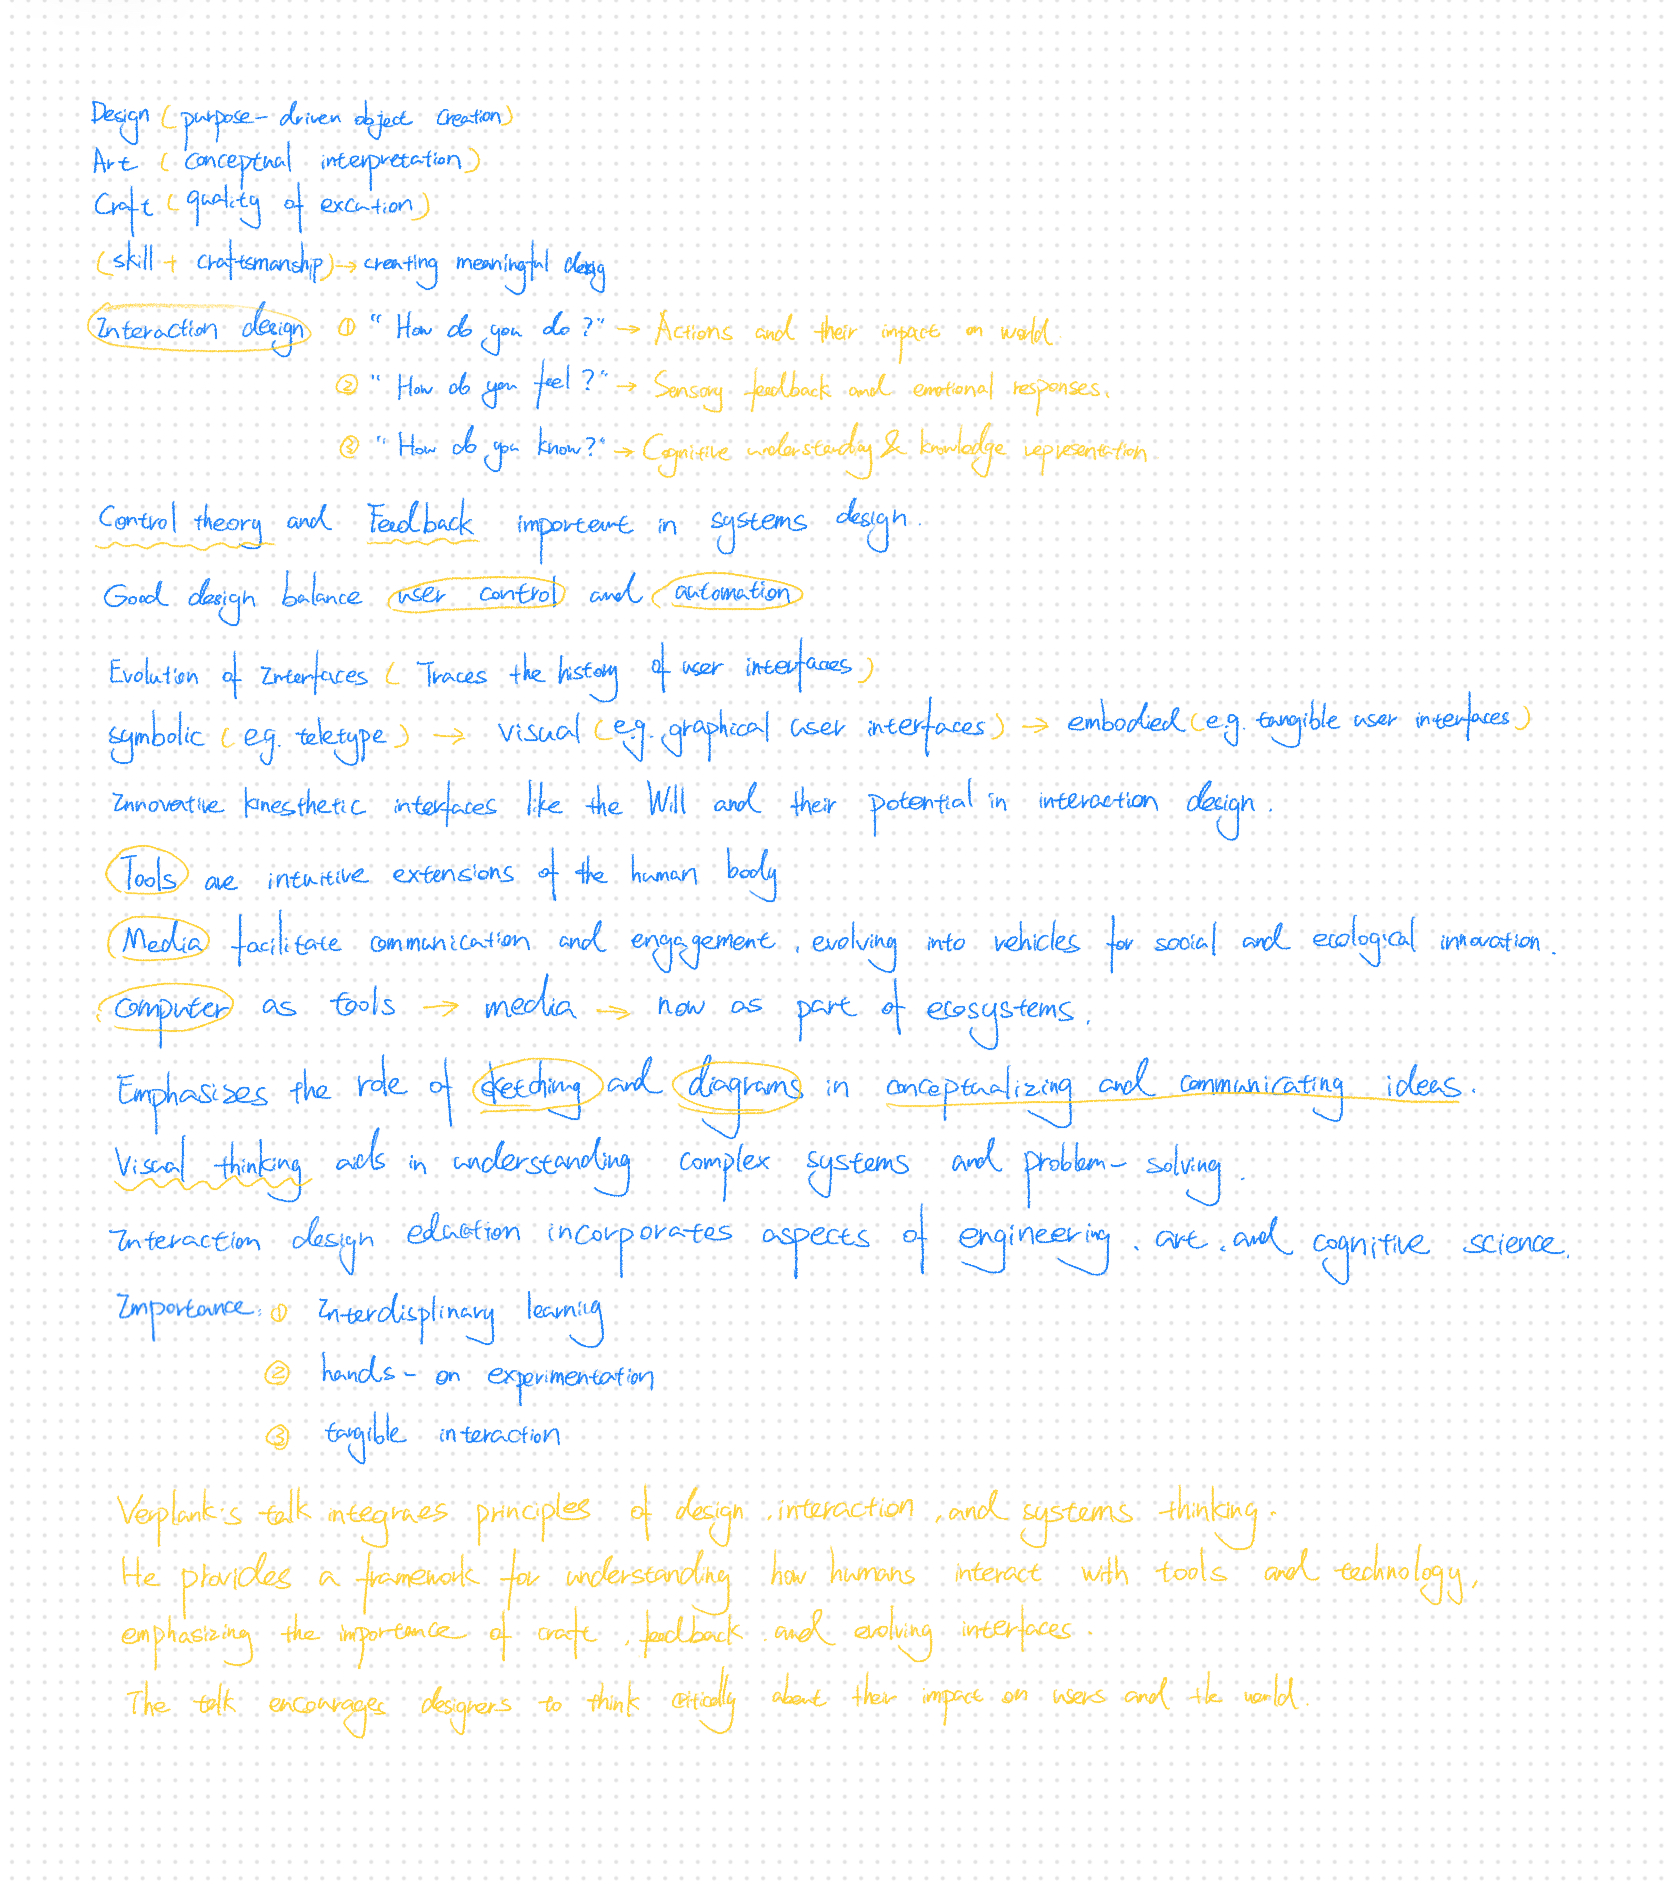 Design (purpose-driven object creation)
Art (conceptual interpretation)
Craft (quality of excution)
(skill + craftsmanship) → creating meaningful desig
Interaction design ① "How do you do?" → Actions and their impact on world.
② "How do you feel?" → Sensory feedback and emotional responses.
③ "How do you know?" → Cognitive understanding & knowledge representation
Control theory and Feedback important in systems design.
Good design balance user control and automation
Evolution of Interfaces (Traces the history of user interfaces)
symbolic (e.g. teletype) → visual (e.g. graphical user interfaces) → embodied (e.g. tangible user interfaces)
Innovative kinesthetic interfaces like the Will and their potential in interaction design.
Tools are intuitive extensions of the human body
Media facilitate communication and engagement, evolving into vehicles for social and ecological innovation.
computer as tools → media → now as part of ecosystems.
Emphasizes the role of sketching and diagrams in conceptualizing and communicating ideas.
Visual thinking aids in understanding complex systems and problem-solving.
Interaction design eduction incorporates aspects of engineering, art, and cognitive science.
Importance: ① Interdisplinary learning
② hands-on experimentation
③ tangible interaction
Verplank's talk integraes principles of design, interaction, and systems thinking.
He provides a framework for understanding how humans interact with tools and technology,
emphasizing the importance of craft, feedback, and evolving interfaces.
The talk encourages designers to think critically about their impact on users and the world.